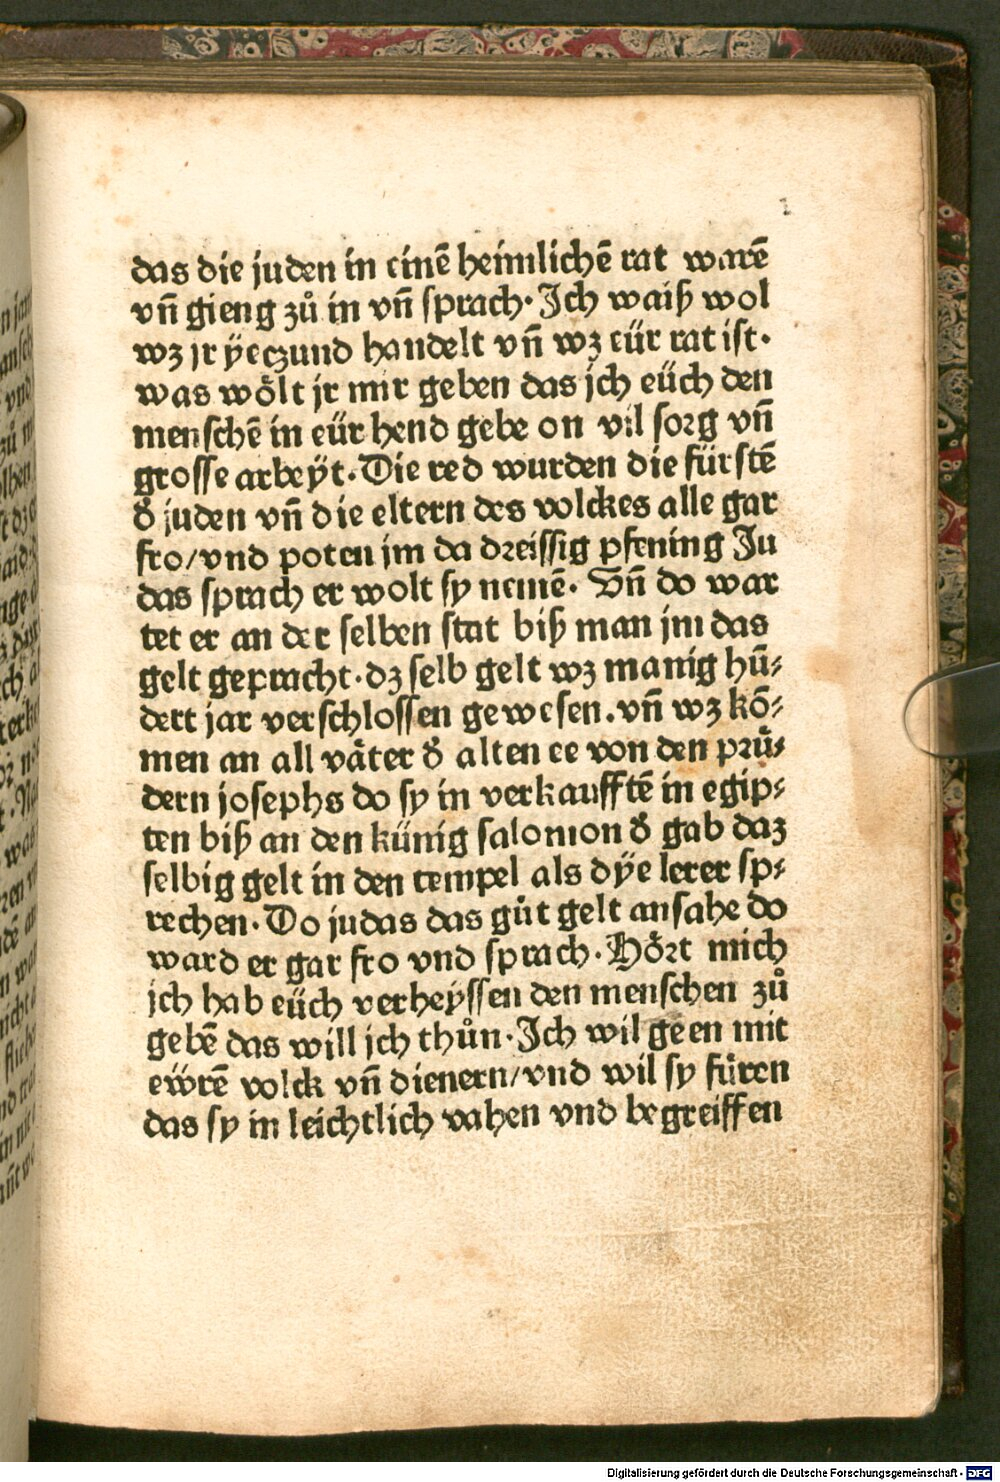 das die juden in einē heimlichē rat warē
vn̄ gieng zů in vn̄ sprach. Ich waiß wol
wz jr ÿeczund handelt vn̄ wz eür rat ist.
was woͤlt jr mir geben das jch eüch den
menschē in eür hend gebe on vil sorg vn̄
grosse arbeÿt. Die red wurden die fürstē
d̕ juden vn̄ die eltern des volckes alle gar
fro/vnd poten jm da dreissig pfening Ju
das sprach er wolt sy nemē. Vn̄ do war
tet er an der selben stat biß man jm das
gelt gepracht. dz selb gelt wz manig hū⸗
dert jar verschlossen gewesen. vn̄ wz kō⸗
men an all vaͤter d̕ alten ee von den pruͤ⸗
dern josephs do sy in verkaufftē in egip⸗
ten biß an den künig salomon d̕ gab daz
selbig gelt in den tempel als dÿe lerer sp⸗
rechen. Do judas das gůt gelt ansahe do
ward er gar fro vnd sprach. Hoͤrt mich
jch hab eüch verheÿssen den menschen zů
gebē das will jch thůn. Ich wil geen mit
ewrē volck vn̄ dienern/vnd wil sy füren
das sy in leichtlich vahen vnd begreiffen
Digitalisierung gefördert durch die Deutsche Forschungsgemeinschaft - DFG